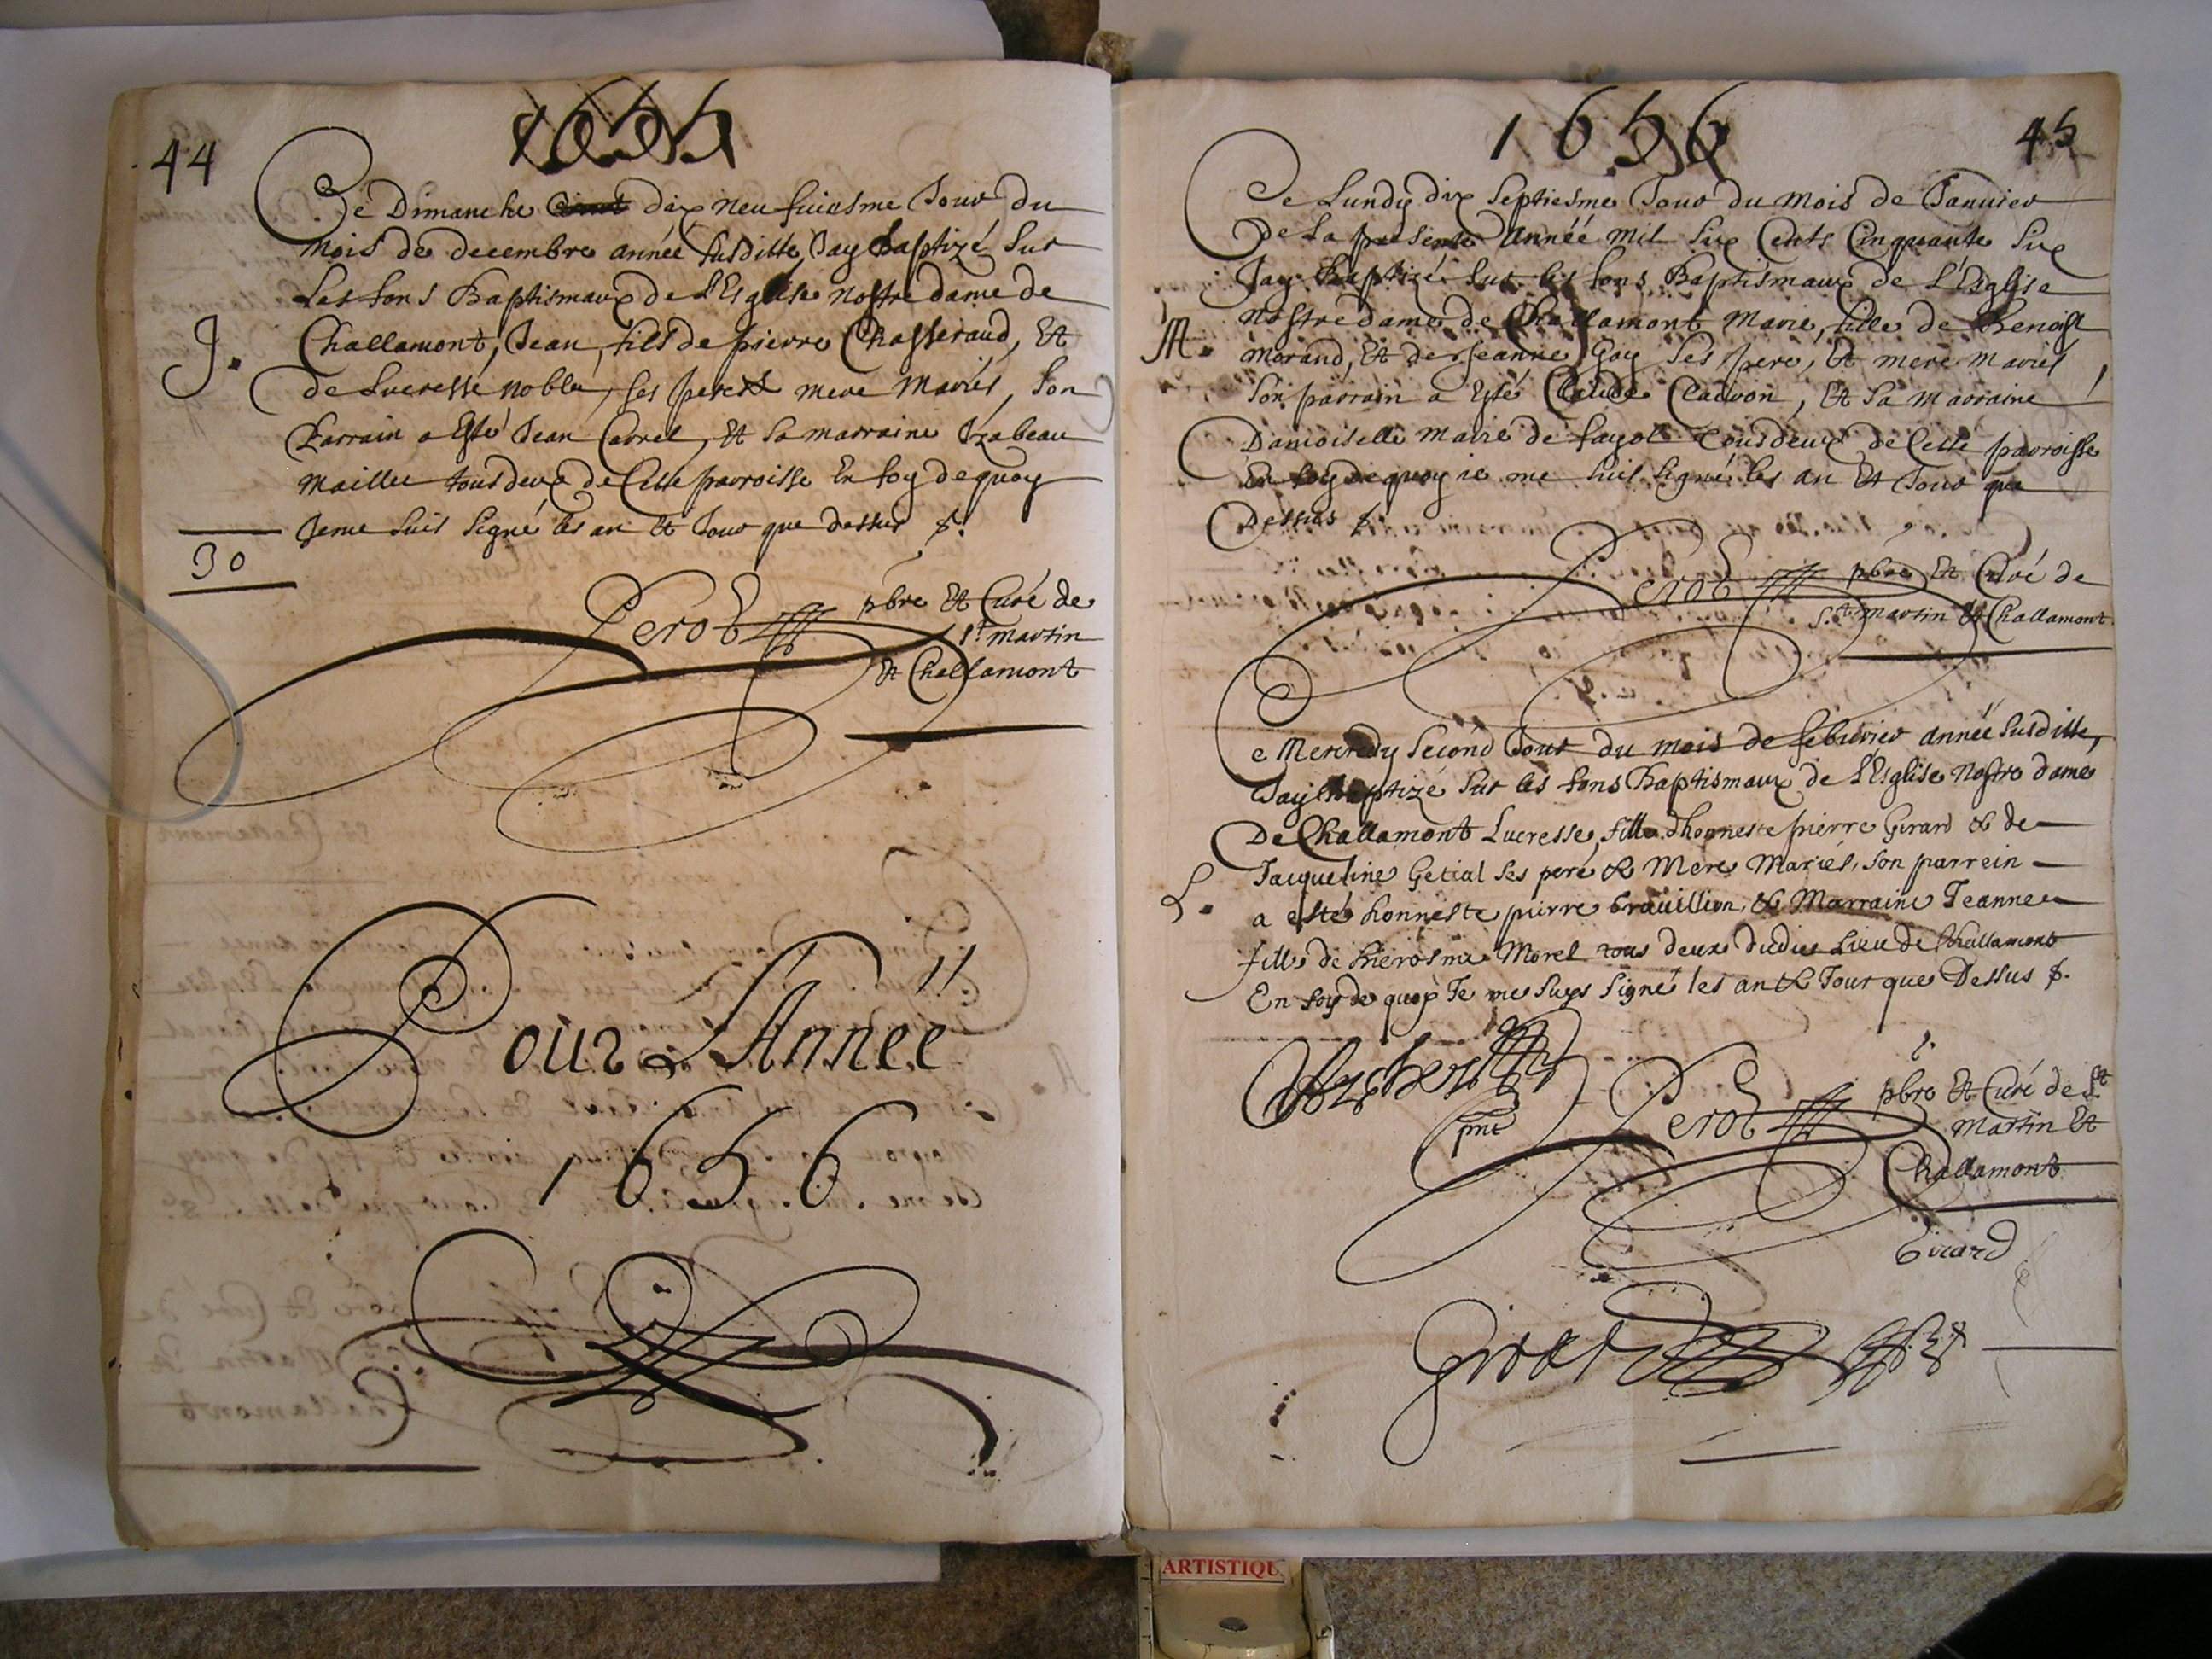 44
1655
Ce Dimanche dix neufuiesme Jour du
mois de decembre année susditte, Jay baptizé sur
Les fons Baptismaux de l'Esglise nostre dame de
J.
Challamont, Jean, fils de pierre Chasseraud, Et
de Lucresse noble, ses pere et mere mariés, son
Parrain a Esté Jean Carrel, Et sa marraine Izabeau
Maillet tous deux de Cette parroisse En foy de quoy
Jeme suis signé les an Et Jour que dessus
30
Perot pbre Et Curé de
St martin
Et Challamont
Pour L'Année
1656
1656
45
Ce Lundy dix septiesme Jour du mois de Januier
De La presente Année mil six Cents Cinquante six
Jay Baptizé sur les fons Baptismaux de L'Esglise
nostre dame de Challamont Marie, fille de Benoist
M.
morand, Et de Jeanne Goy ses pere, Et mere mariés
son parrain a Esté Claude Cladron, Et sa marraine
Damoiselle marie de fayol tous deux de Cette parroisse
En foy de quoy ie me suis signé les an Et Jour que
Dessus
Perot pbre Et Curé de
St martin Et Challamont
Ce Mercredy second Jour du mois de feburier année susditte,
Jay Baptizé sur les fons Baptismaux de L'Esglise nostre dame
De Challamont Lucresse, fille d'honneste pierre Girard & de
Jacqueline Getial ses pere & Mere Mariés, son parrein
L.
a esté honneste pierre brouillion, & Marraine Jeanne
fille de hierosme Morel tous deux dudict Lieu de Challamont
En foy de quoy Je me suys signé les an & Jour que Dessus
pnt
Perot pbre Et Curé de St
martin Et
Challamont
Girard
ARTISTIQU